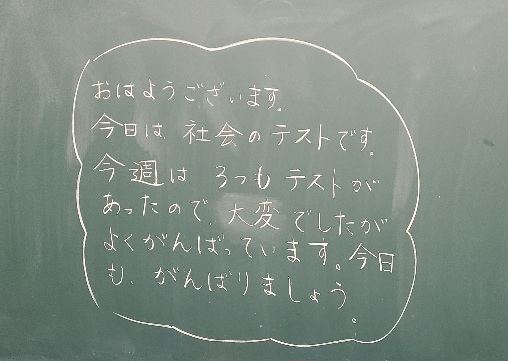 おはようございます。
今日は 社会のテストです。
今週は 3つも テストが
あったので、大変でしたが
よくがんばっています。今日
も、がんばりましょう。